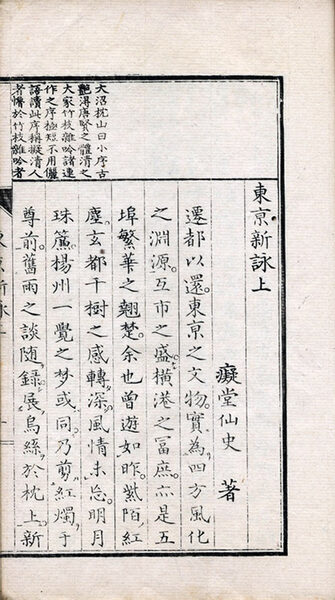 大沼枕山曰小序古
艷得唐賢之體清之
大家竹枝雜吟諸連
作之序極短不用儷
語讀此序稱擬清人
者惰於竹枝雜吟者
東京新詠上
癡堂仙史 著
遷都以還東京之文物實為四方風化
之淵源互市之盛橫港之冨庶亦是五
埠繁華之翹楚余也曾遊如昨紫陌紅
塵玄都千樹之感轉深風情未忘明月
珠簾楊州一覺之梦或同乃剪紅燭于
尊前舊雨之談随錄展烏絲於枕上新
東京新詠